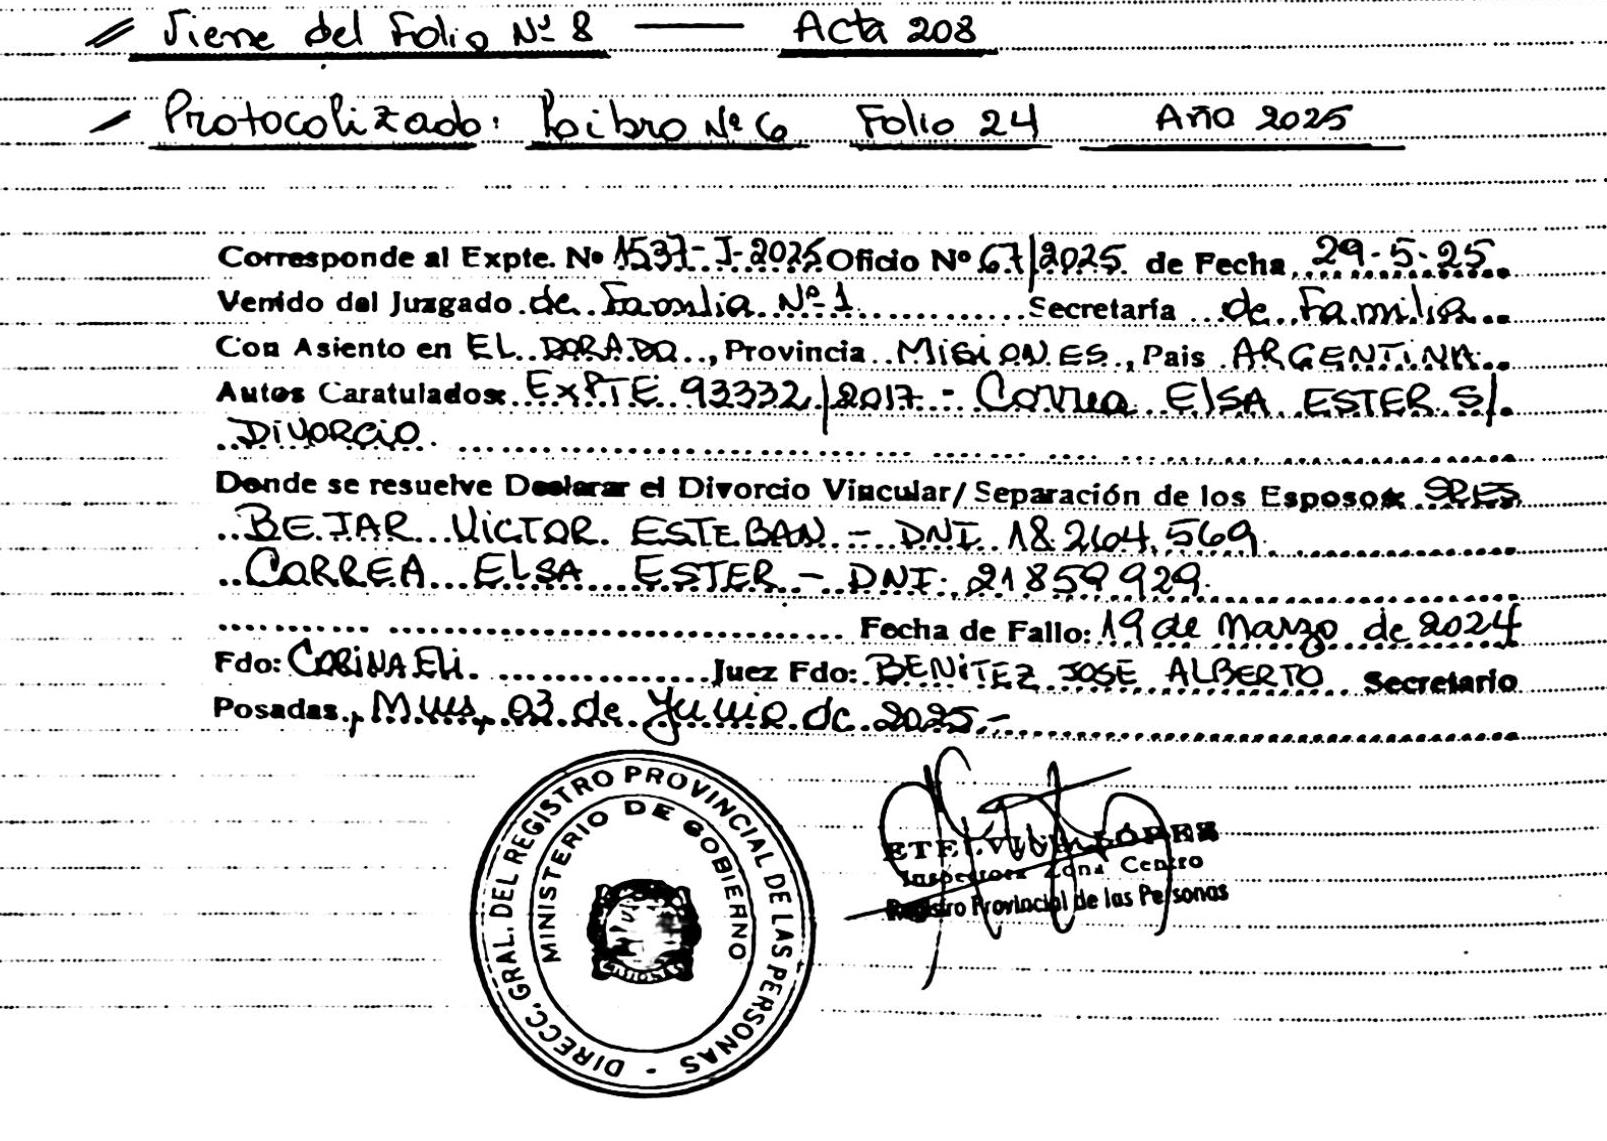 // Viene del Folio Nº 8 — Acta 208
/ Protocolizado: Libro Nº 6 Folio 24 Año 2025
Corresponde al Expte. Nº 1537-J-2025 Oficio Nº 67/2025 de Fecha 29-5-25
Venido del Juzgado de Familia Nº 1 Secretaría de Familia
Con Asiento en EL DORADO, Provincia MISIONES, Pais ARGENTINA
Autos Caratulados: EXPTE 93332/2017 - Correa ELSA ESTER S/
DIVORCIO.
Donde se resuelve Declarar el Divorcio Vincular/Separación de los Esposos: SRES
BEJAR VICTOR ESTEBAN - DNI 18.264.569
CORREA ELSA ESTER - DNI: 21859929.
Fecha de Fallo: 19 de Marzo de 2024
Fdo: CORINA Eli. Juez Fdo: BENITEZ JOSE ALBERTO Secretario
Posadas, Mnes, 03 de Junio de 2025.-
DIRECC. GRAL. DEL REGISTRO PROVINCIAL DE LAS PERSONAS -
MINISTERIO DE GOBIERNO
MISIONES
ETELVINA LÓPEZ
Inspectora Zona Centro
Registro Provincial de las Personas